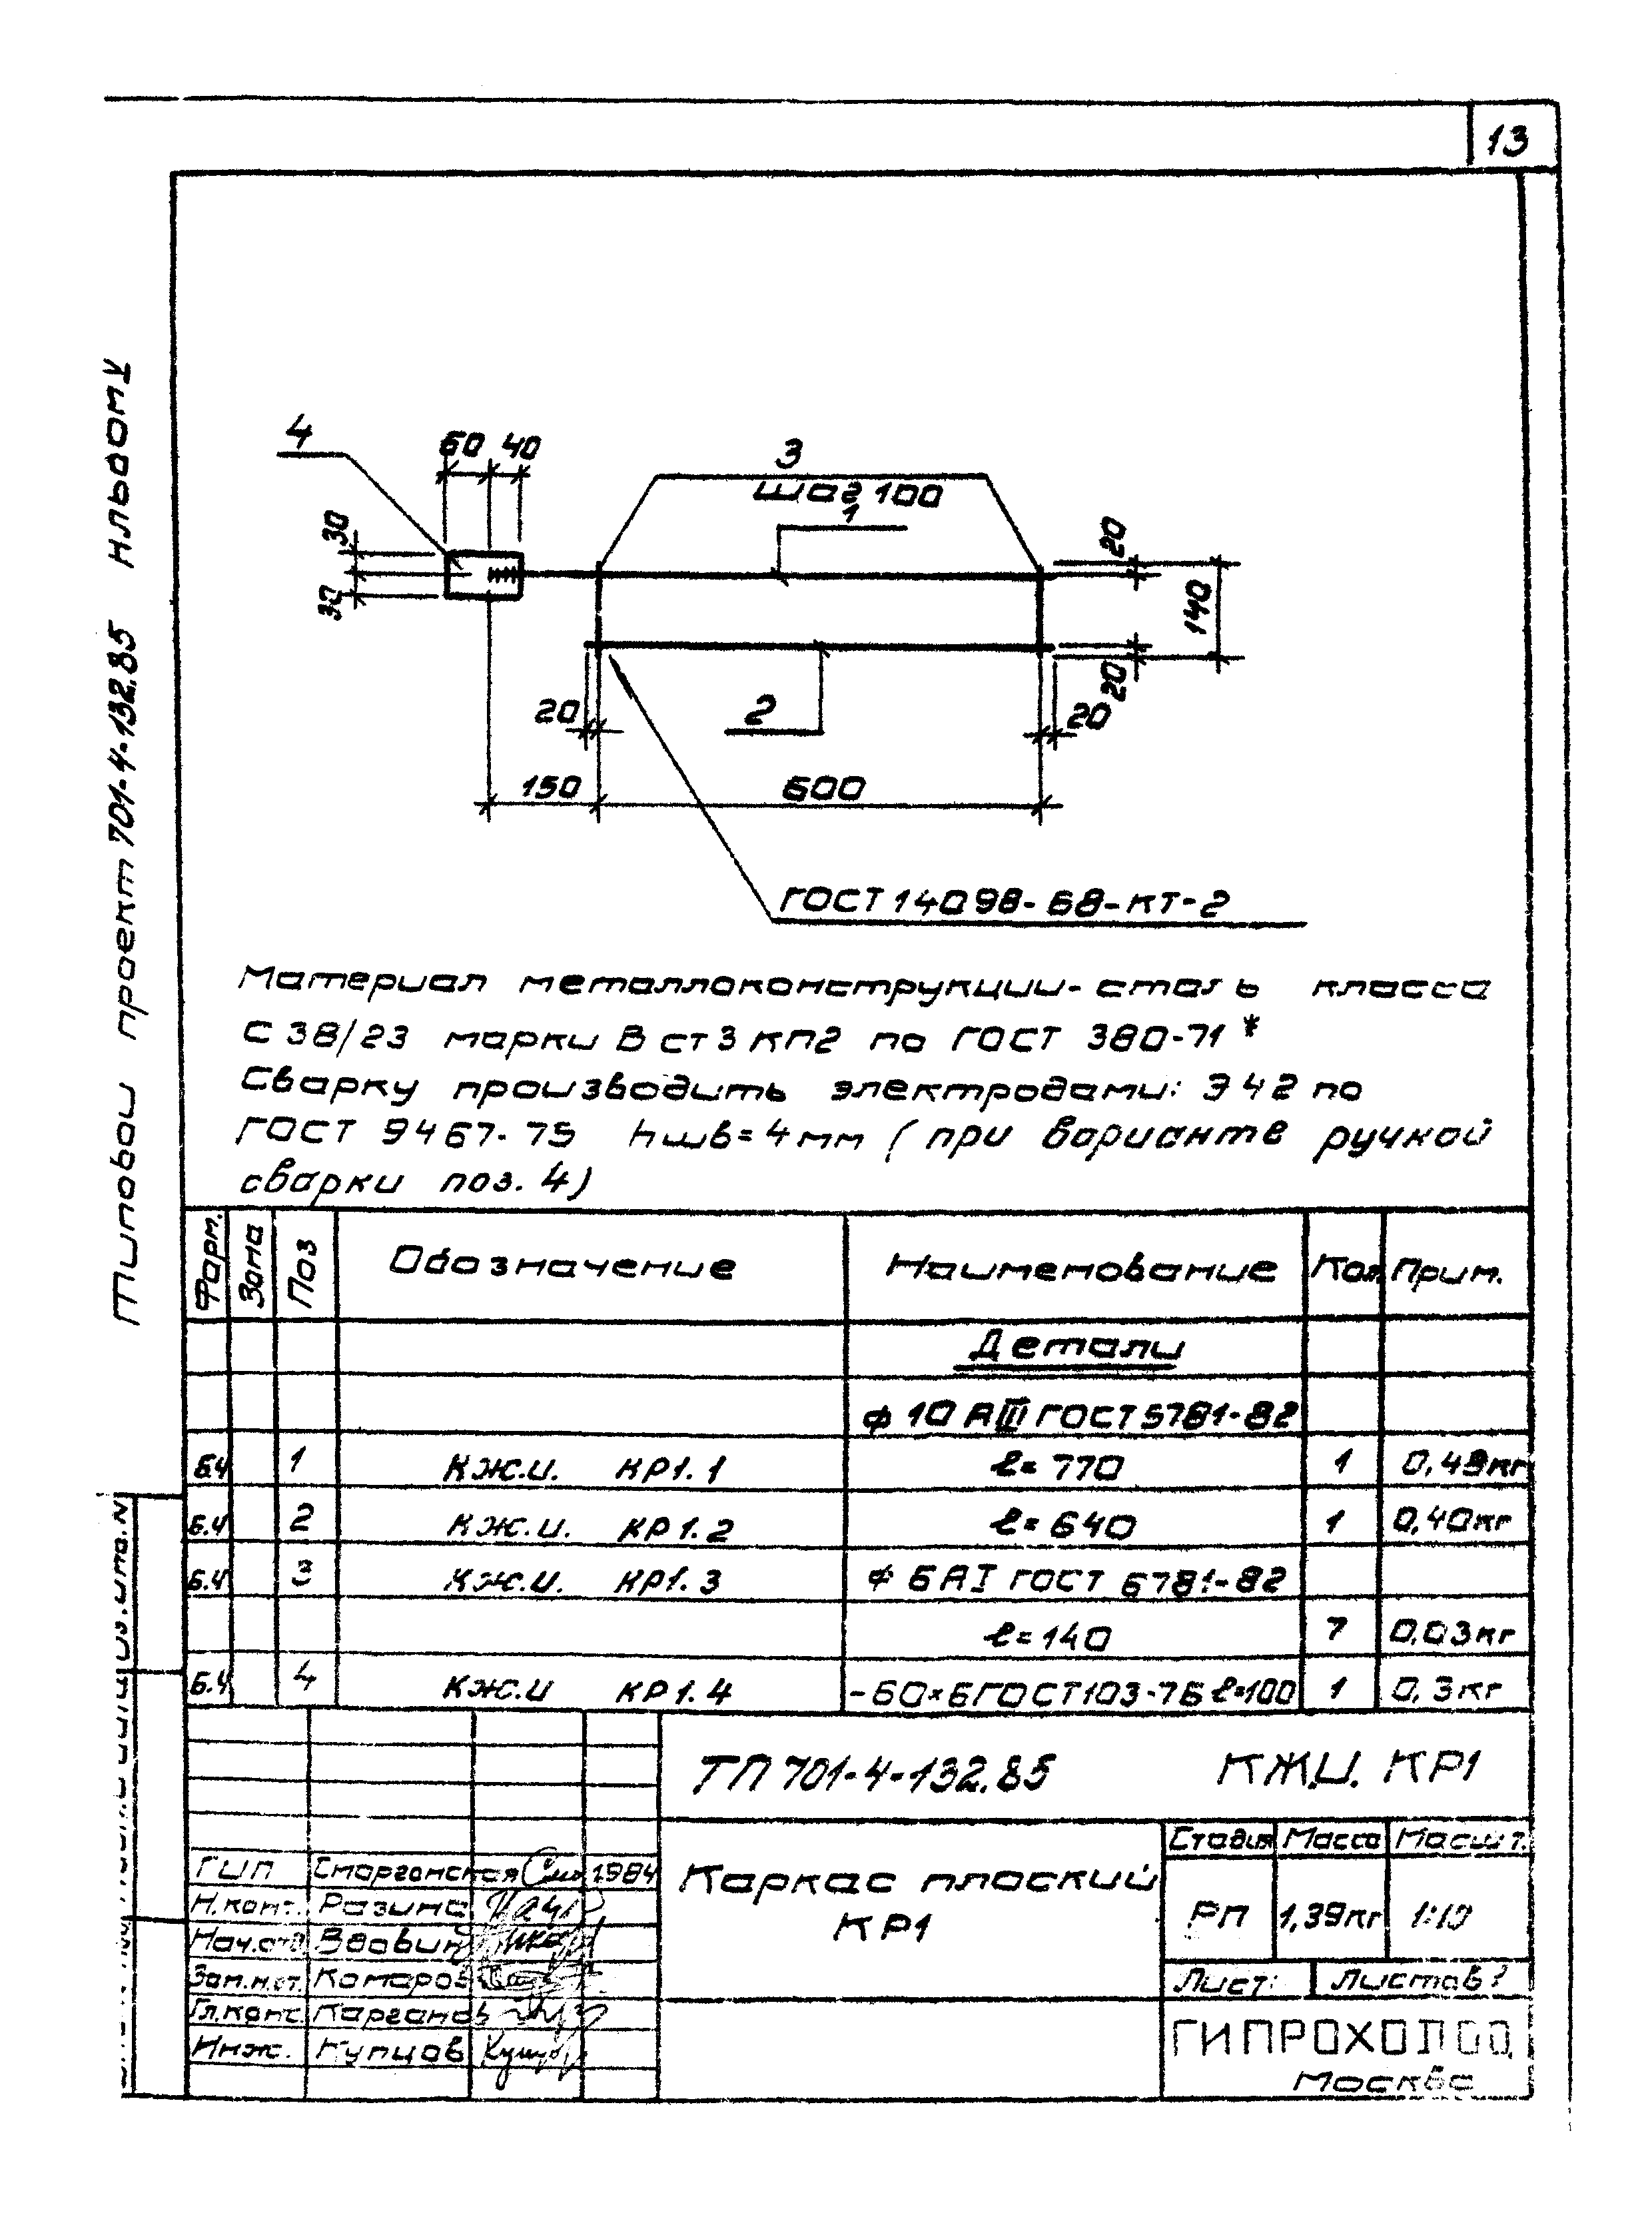 13
Типовой проект 701-4-132.85 Альбом V
4
60 40
3
шаг 100
1
30
30
20
140
20
20
2
20
150
600
ГОСТ 14098-68-КТ-2
Материал металлоконструкции- сталь класса
С 38/23 марки В ст 3 кп2 по ГОСТ 380-71*
Сварку производить электродами: Э 42 по
ГОСТ 9467-75 hшв=4мм (при варианте ручной
сварки поз. 4)
Форм. Зона Поз Обозначение Наименование Кол. Прим.
Детали
ф 10 АIII ГОСТ 5781-82
Б.Ч 1 КЖ.И. КР1.1 ℓ= 770 1 0,48кг
Б.Ч 2 КЖ.И. КР1.2 ℓ= 640 1 0,40кг
Б.Ч 3 КЖ.И. КР1.3 ф 6 АI ГОСТ 5781-82
ℓ=140 7 0,03кг
Б.Ч 4 КЖ.И КР1.4 -60×6 ГОСТ 103-76 ℓ=100 1 0,3кг
ТП 701-4-132.85 КЖ.И. КР1
Стадия Масса Масшт.
ГИП Сморгонская 1984
Каркас плоский
КР1
Н.конт. Разина
РП 1,39кг 1:10
Нач.отд Вдовин
Зам.н.от. Комаров
Лист: Листов
Гл.конс. Карганов
Инж. Купцов
ГИПРОХОЛОД
Москва